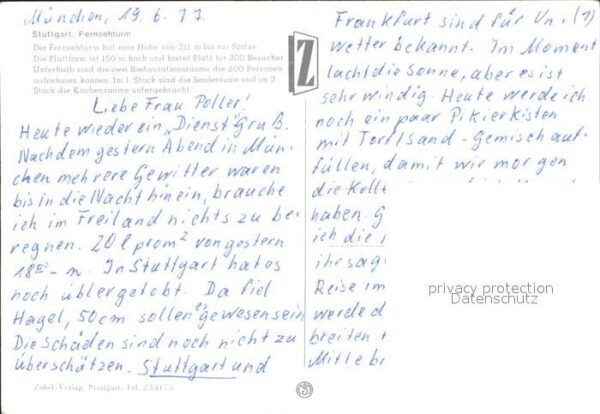 München, 19.6.77.
Stuttgart, Fernsehturm
Der Fernsehturm hat eine Höhe von 211 m bis zur Spitze.
Die Plattform ist 150 m hoch und bietet Platz für 300 Besucher
Unterhalb sind die zwei Restaurationsräume, die 200 Personen
aufnehmen können. Im 1. Stock sind die Senderäume und im 2.
Stock die Küchenräume untergebracht.
Z
Liebe Frau Poller!
Heute wieder ein „Dienst"gruß.
Nachdem gestern Abend in Mün-
chen mehrere Gewitter waren
bis in die Nacht hinein, brauche
ich im Freiland nichts zu be-
regnen. 20 l pro m² von gestern
18⁰⁰ - n. In Stuttgart hat es
noch übler getobt. Da fiel
Hagel, 50cm sollen es gewesen sein
Die Schäden sind noch nicht zu
überschätzen. Stuttgart und
Zobel-Verlag, Stuttgart, Tel. 233173
Frankfurt sind für Un- (1)
wetter bekannt. Im Moment
lacht die Sonne, aber es ist
sehr windig. Heute werde ich
noch ein paar Pikierkisten
mit Torf/Sand - Gemisch auf-
füllen, damit wir morgen
die
haben.
ich die
ihr sag
Reise im
werde d
breiten
Mitte br
privacy protection
Datenschutz